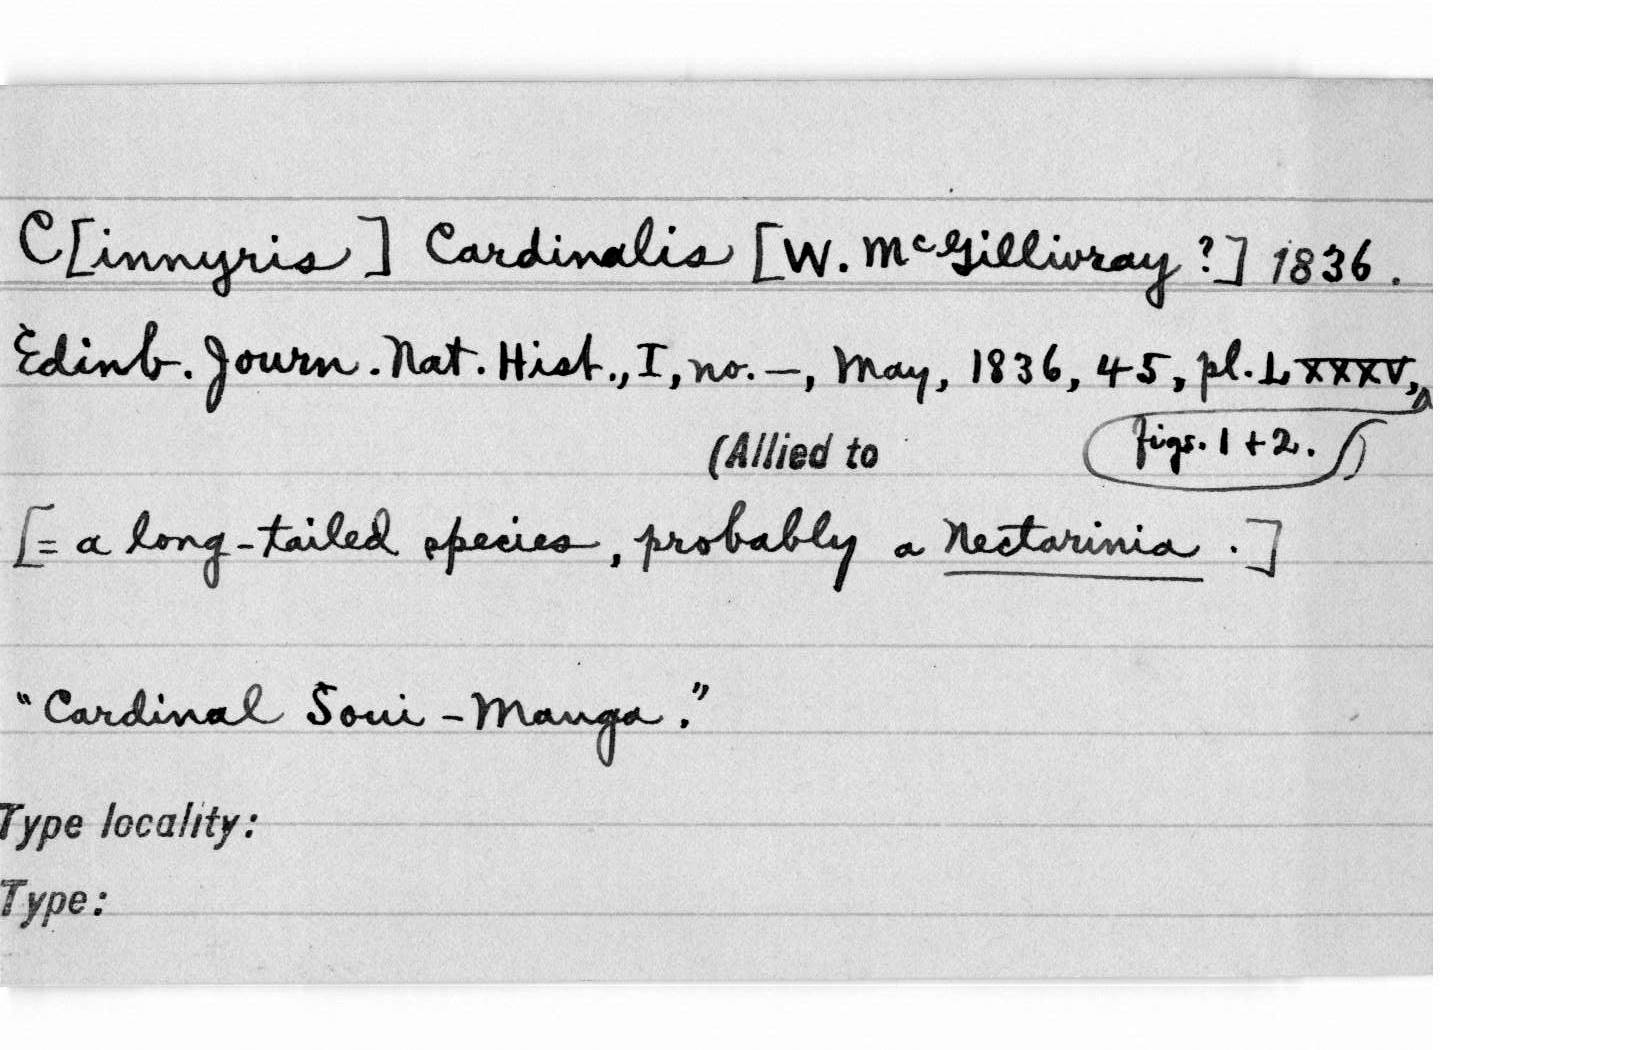 C[innyris] Cardinalis [W. McGillivray ?] 1836.
Edinb. Journ. Nat. Hist., I, no. –, May, 1836, 45, pl. LXXXV,
figs. 1 + 2.
(Allied to
[= a long-tailed species, probably a Nectarinia.]
"Cardinal Soui-Manga."
Type locality:
Type: